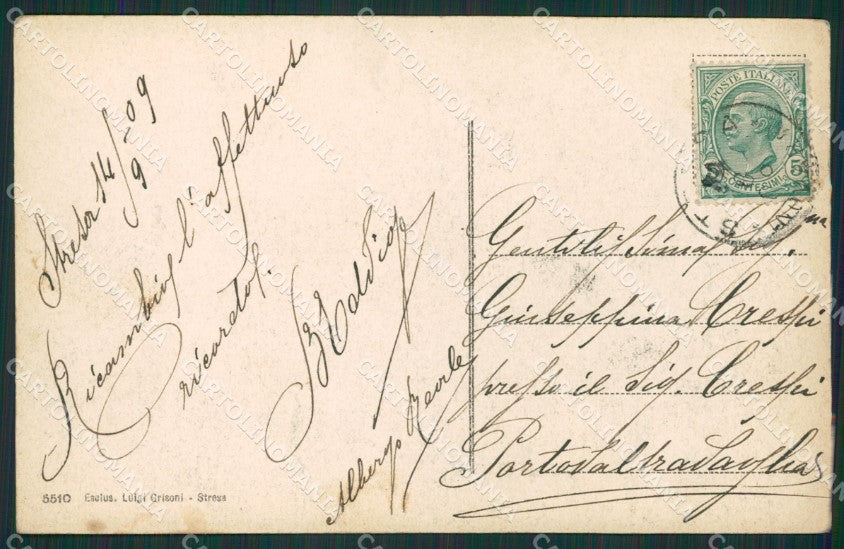 Stresa 14/9 09
Ricambio l'affettuoso
ricordo.
Albergo
Gentilissima Sig.na
Giuseppina Crespi
presso il Sig. Crespi
Portovaltravaglia
POSTE ITALIANE
CENTESIMI 5
5510 Esclus. Luigi Grisoni - Stresa
CARTOLINOMANIA